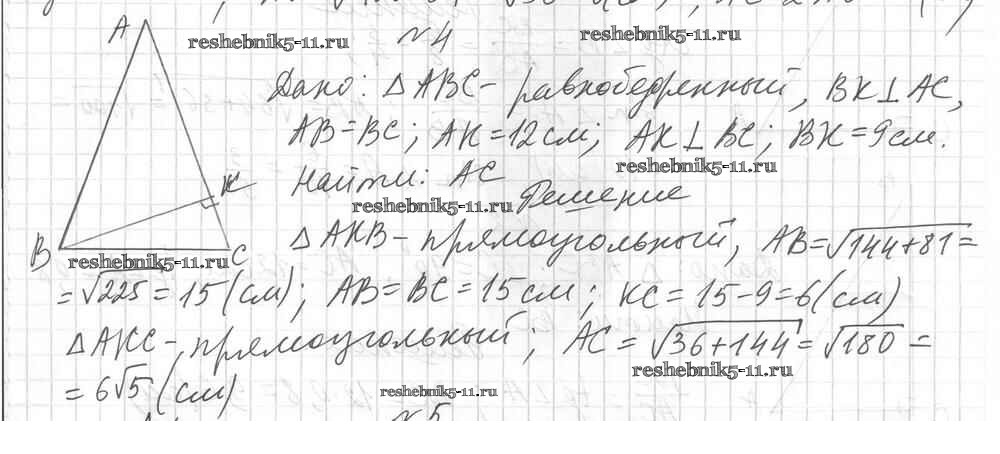 A
№4
reshebnik5-11.ru
reshebnik5-11.ru
Дано: △ABC - равнобедренный, BK⊥AC,
AB=BC; AK=12см; AK⊥BC; BK=9см.
reshebnik5-11.ru
Найти: AC
K
reshebnik5-11.ru
Решение
B
C
reshebnik5-11.ru
△AKB - прямоугольный, AB=√144+81=
=√225=15(см); AB=BC=15см; KC=15-9=6(см)
△AKC - прямоугольный; AC=√36+144=√180=
reshebnik5-11.ru
=6√5(см)
reshebnik5-11.ru
№5